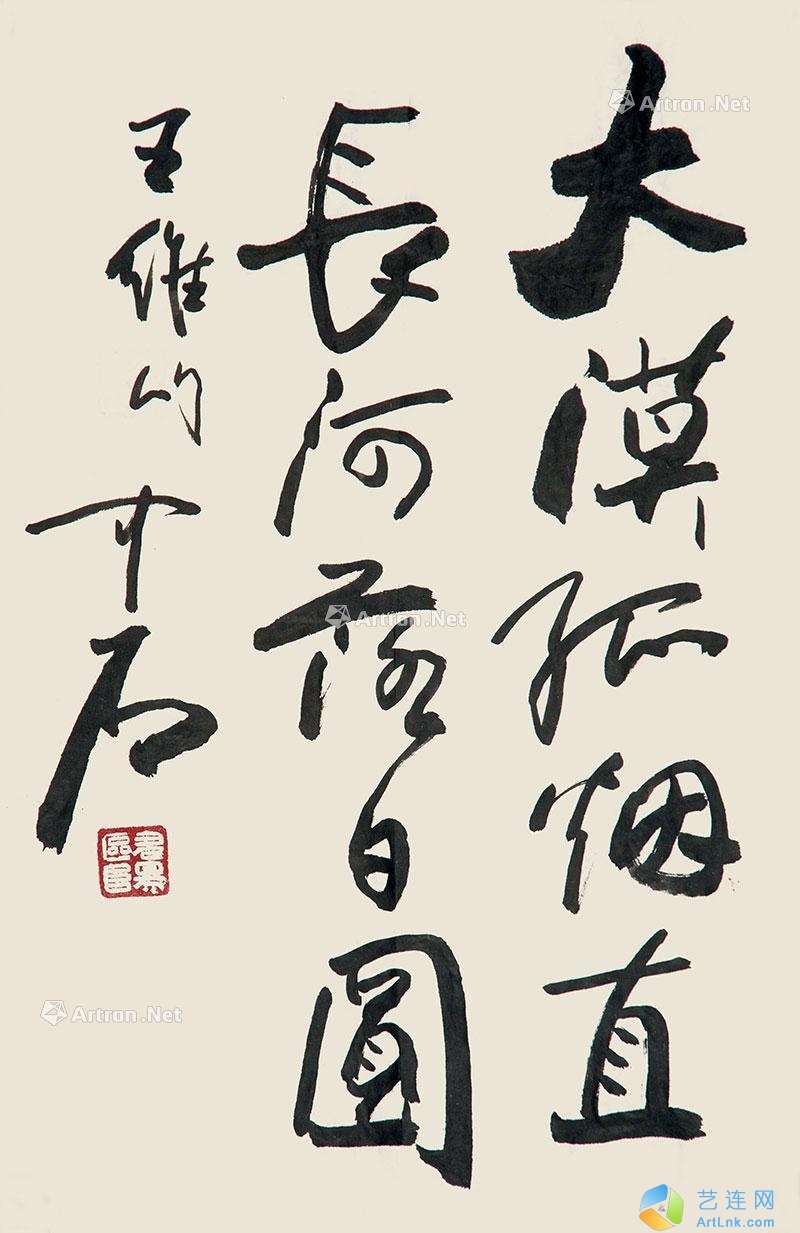 大漠孤烟直
長河落日圓
王維句 中石
Artron.Net
Artron.Net
Artron.Net
艺连网
ArtLnk.com